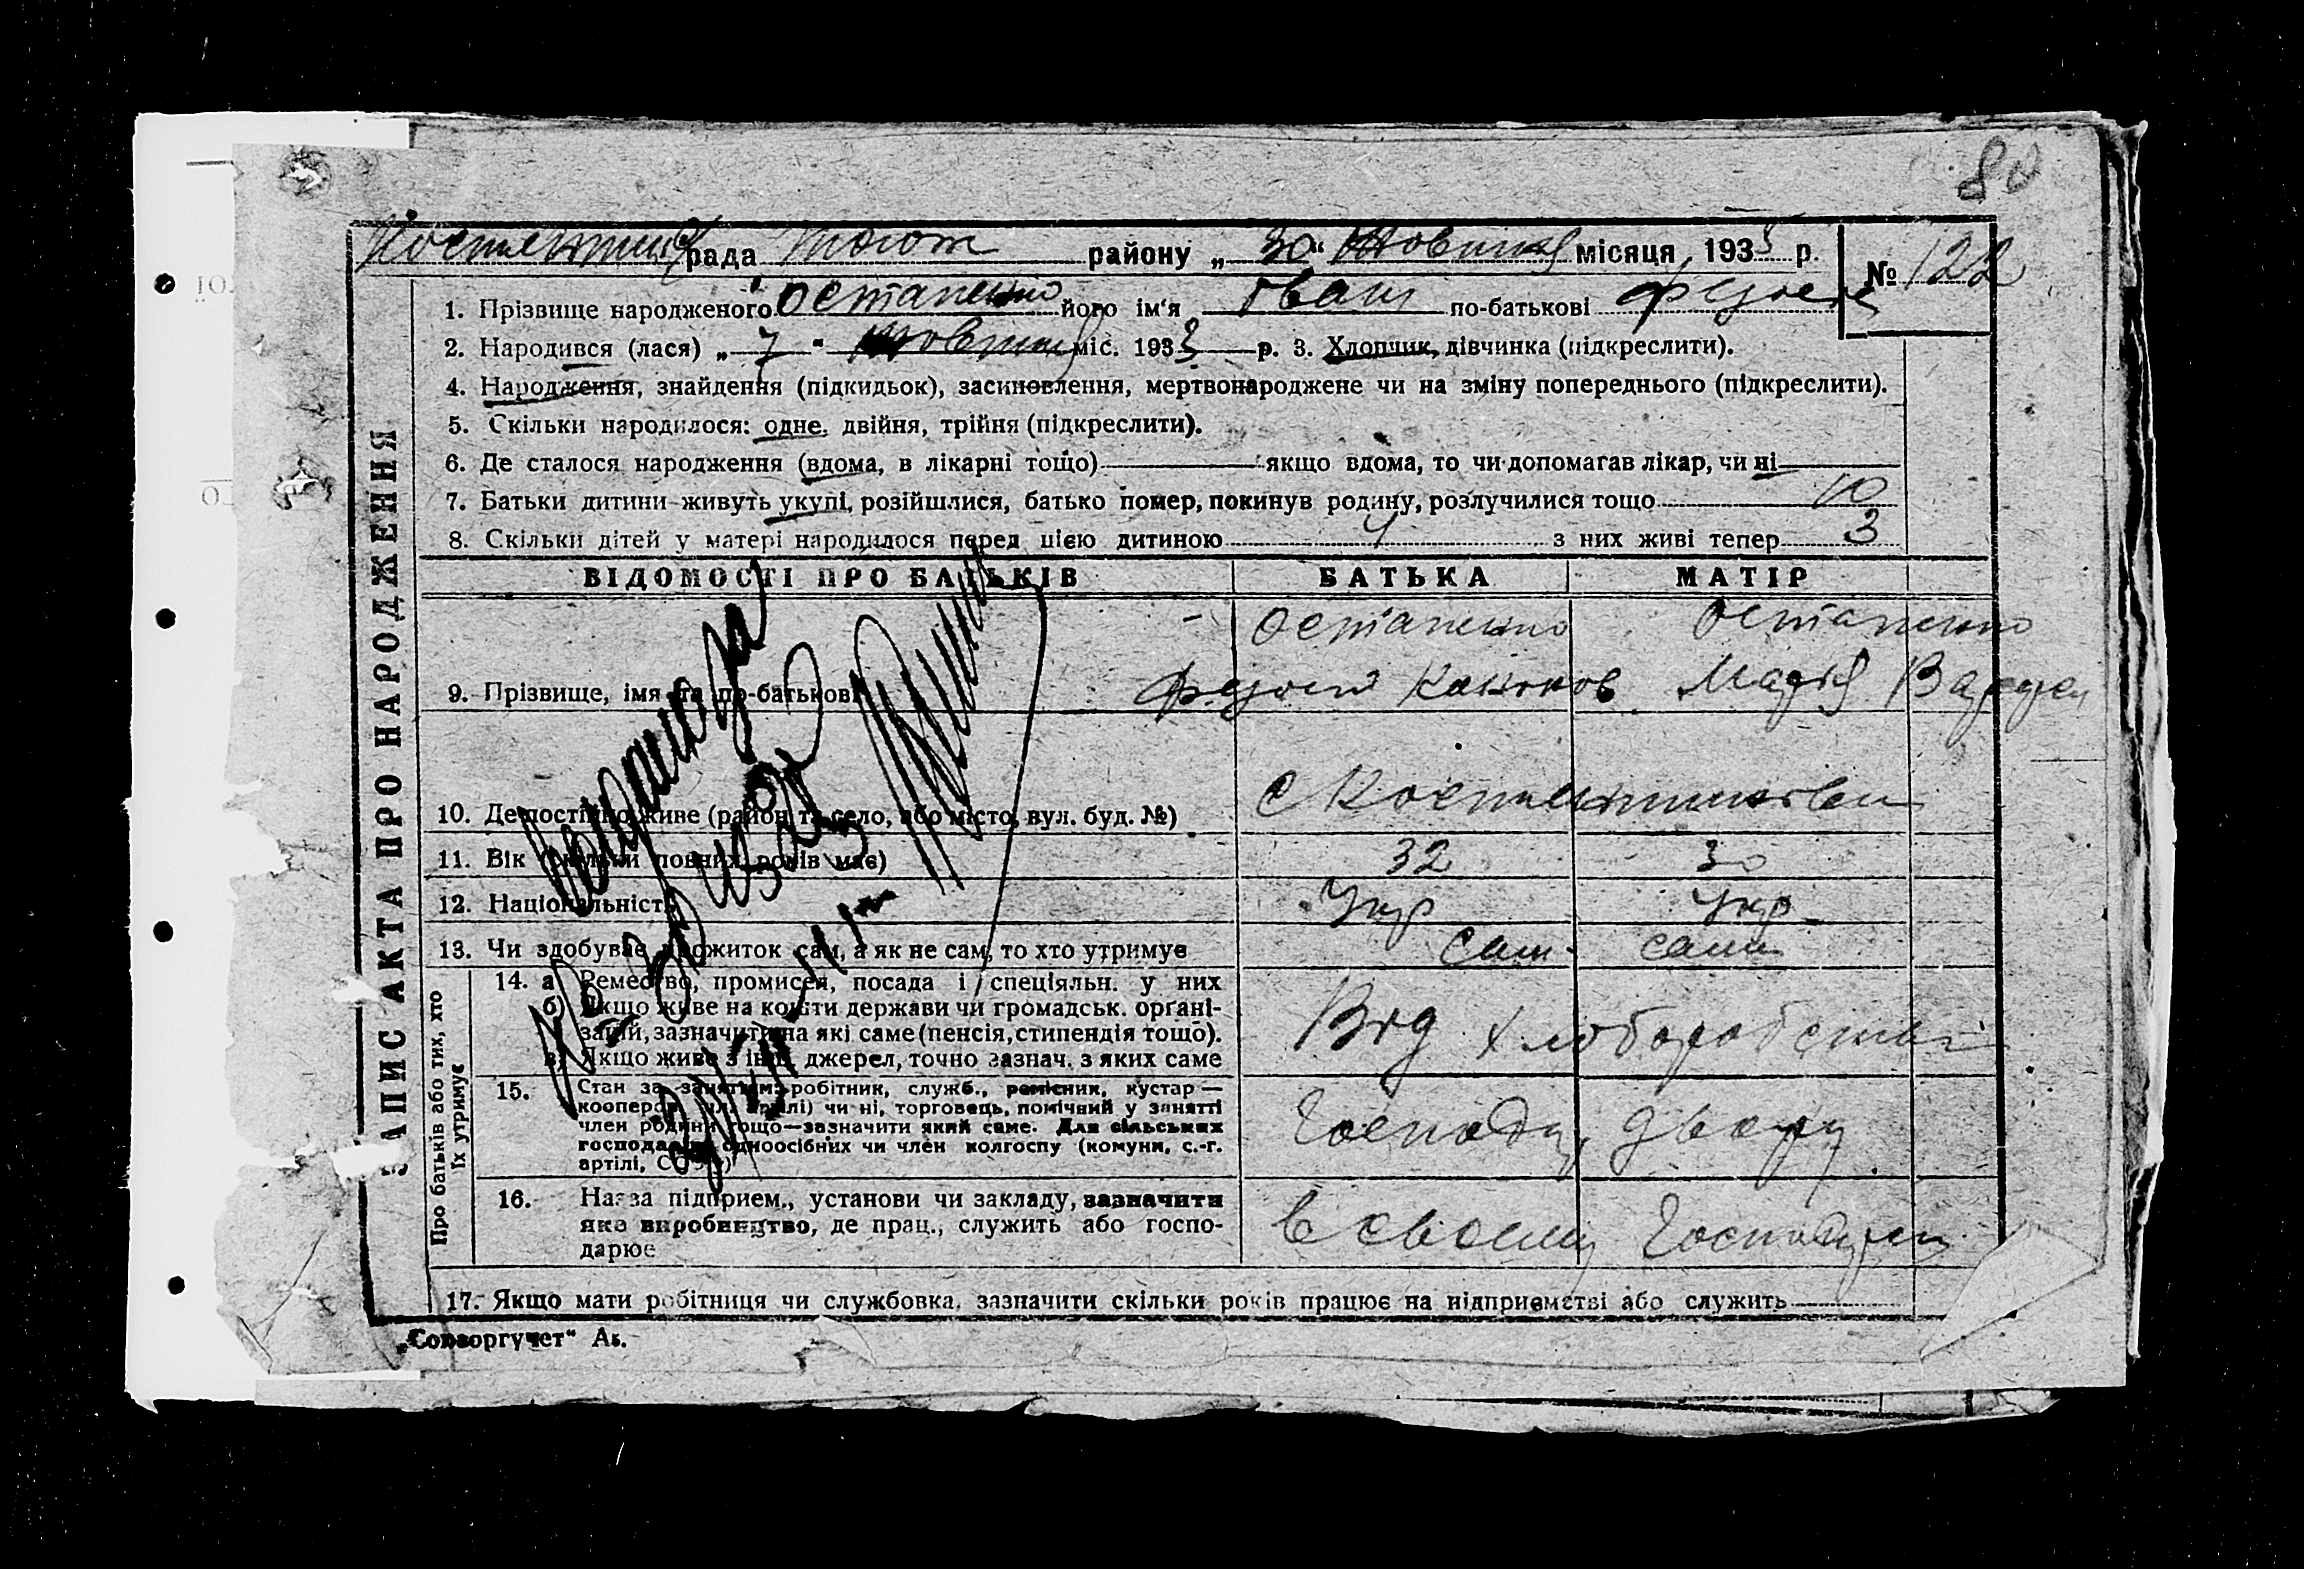 80
рада району „ 30 “ Жовтня місяця 1933 р. № 122
1. Прізвище народженого Остапенко його ім'я Іван по-батькові
2. Народився (лася) „ 7 “ Жовтня міс. 1933 р. 3. Хлопчик, дівчинка (підкреслити).
4. Народження, знайдення (підкидьок), засиновлення, мертвонароджене чи на зміну попереднього (підкреслити).
5. Скільки народилося: одне, двійня, трійня (підкреслити).
6. Де сталося народження (вдома, в лікарні тощо) якщо вдома, то чи допомагав лікар, чи ні
7. Батьки дитини живуть укупі, розійшлися, батько помер, покинув родину, розлучилися тощо 10
8. Скільки дітей у матері народилося перед цією дитиною 4 з них живі тепер 3
ЗАПИС АКТА ПРО НАРОДЖЕННЯ
ВІДОМОСТІ ПРО БАТЬКІВ БАТЬКА МАТІР
Остапенко Остапенко
9. Прізвище, імя та по-батькові Марія
10. Де постійно живе (район та село, або місто, вул. буд. №) с
11. Вік (скільки повних років має) 32 30
12. Національність Укр Укр
13. Чи здобуває прожиток сам, а як не сам, то хто утримує сам сама
Про батьків або тих, хто
їх утримує
14. а) Ремество, промисел, посада і спеціяльн. у них
б) Якщо живе на кошти держави чи громадськ. органі-
зацій, зазначити на які саме (пенсія, стипендія тощо).
в) Якщо живе з інш. джерел, точно зазнач. з яких саме
Від хлоборобства
15. Стан за заняттям: робітник, служб., ремісник, кустар —
кооперов. (чл. артілі) чи ні, торговець, помічний у занятті
член родини тощо—зазначити який саме. Для сільських
господарів одноосібних чи член колгоспу (комуни, с.-г.
артілі, СОЗ'у)
Господ двору
16. Назва підприєм., установи чи закладу, зазначити
яке виробництво, де прац., служить або госпо-
дарює
в своему
17. Якщо мати робітниця чи службовка, зазначити скільки років працює на підприємстві або служить
„Союзоргучет“ Ак.